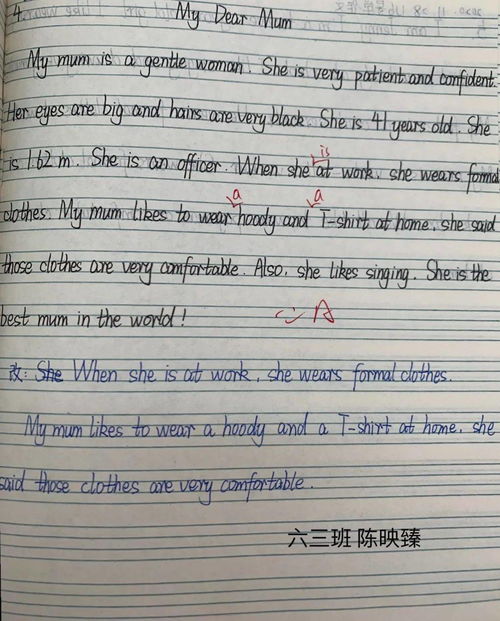 4. My Dear Mum
My mum is a gentle woman. She is very patient and confident.
Her eyes are big and hairs are very black. She is 41 years old. She
is 1.62 m. She is an officer. When she is at work, she wears formal
clothes. My mum likes to wear a hoody and a T-shirt at home, she said
those clothes are very comfortable. Also, she likes singing. She is the
best mum in the world! A
改: She When she is at work, she wears formal clothes.
My mum likes to wear a hoody and a T-shirt at home, she
said those clothes are very comfortable.
六三班 陈映臻